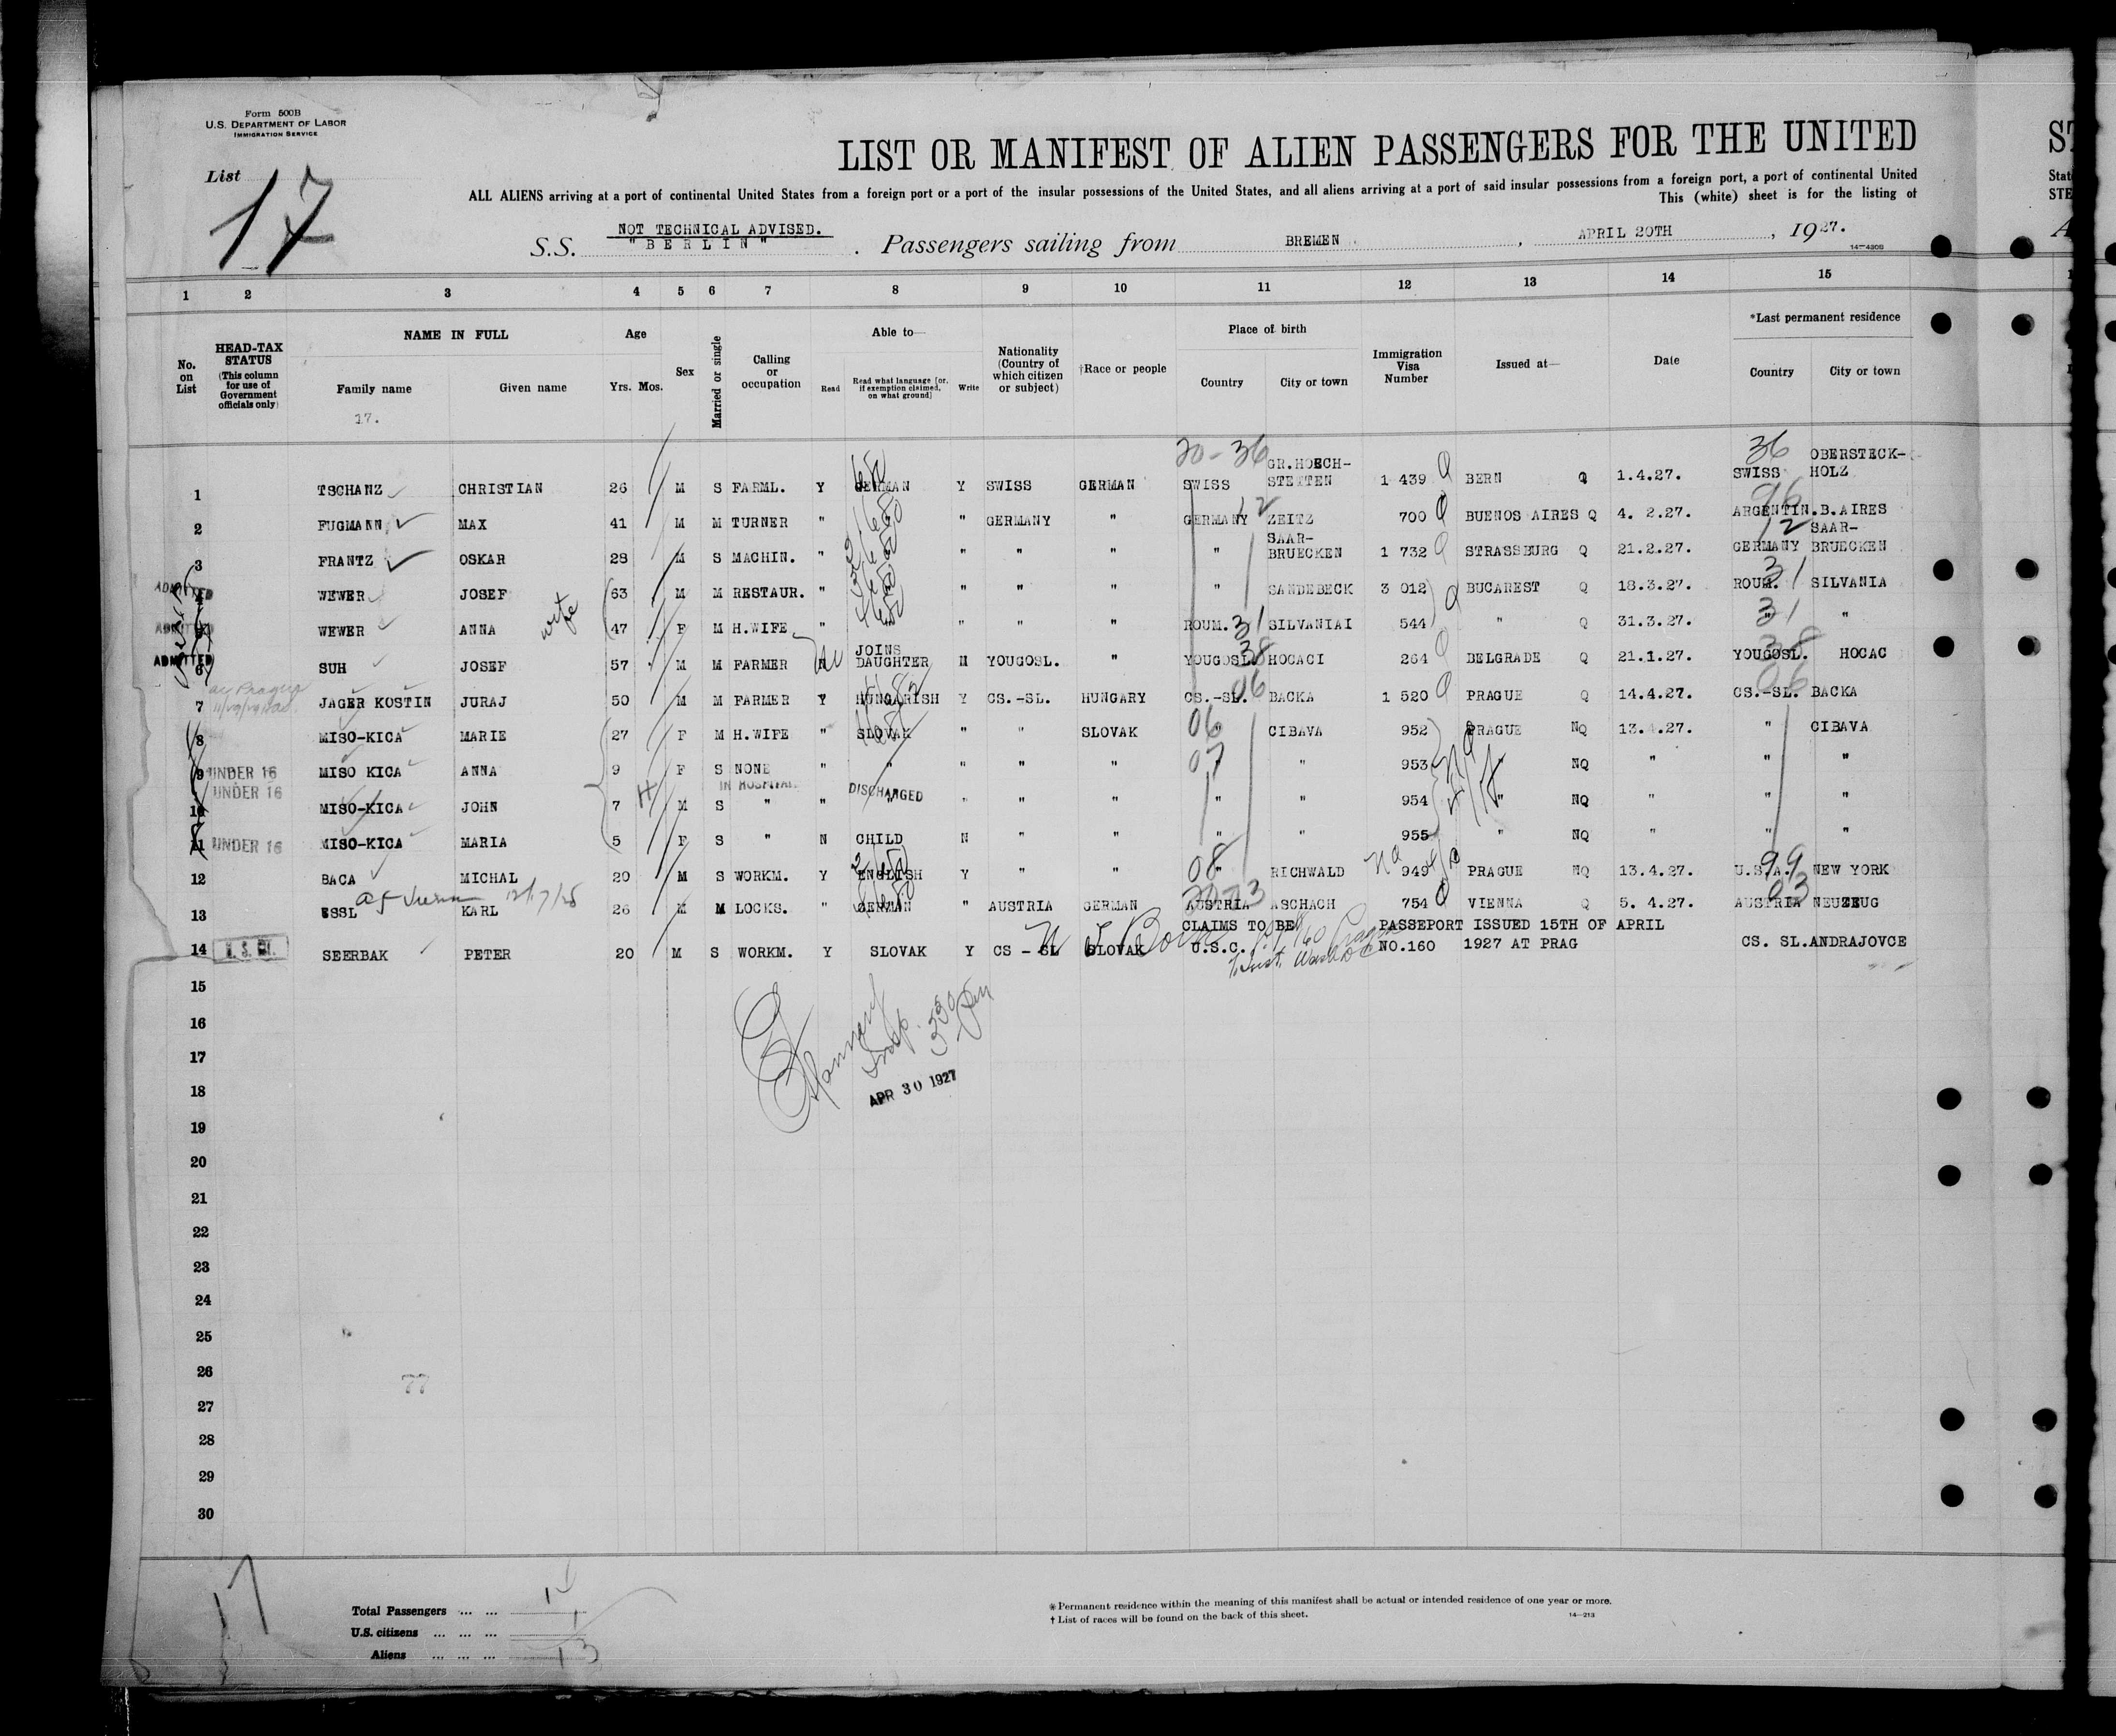 Form 500B
U.S. DEPARTMENT OF LABOR
IMMIGRATION SERVICE
List 17
LIST OR MANIFEST OF ALIEN PASSENGERS FOR THE UNITED
ALL ALIENS arriving at a port of continental United States from a foreign port or a port of the insular possessions of the United States, and all aliens arriving at a port of said insular possessions from a foreign port, a port of continental United
This (white) sheet is for the listing of
NOT TECHNICAL ADVISED.
S.S. "BERLIN". Passengers sailing from BREMEN, APRIL 20TH, 1927.
14-4208
1 2 3 4 5 6 7 8 9 10 11 12 13 14 15
No. on List
HEAD-TAX STATUS (This column for use of Government officials only)
NAME IN FULL Family name Given name
Age Yrs. Mos.
Sex
Married or single
Calling or occupation
Able to— Read Read what language [or, if exemption claimed, on what ground] Write
Nationality (Country of which citizen or subject)
†Race or people
Place of birth Country City or town
Immigration Visa Number
Issued at—
Date
*Last permanent residence Country City or town
17.
20-36 36
1 TSCHANZ CHRISTIAN 26 M S FARML. Y GERMAN Y SWISS GERMAN SWISS GR.HOECH-STETTEN 1 439 Q BERN Q 1.4.27. SWISS OBERSTECK-HOLZ
2 FUGMANN MAX 41 M M TURNER " " GERMANY " GERMANY 12 ZEITZ 700 Q BUENOS AIRES Q 4. 2.27. ARGENTIN. B.AIRES
3 FRANTZ OSKAR 28 M S MACHIN. " " " " " SAAR-BRUECKEN 1 732 Q STRASSBURG Q 21.2.27. GERMANY 12 SAAR-BRUECKEN
ADMITTED 4 WEWER JOSEF 63 M M RESTAUR. " " " " " SANDEBECK 3 012 Q BUCAREST Q 18.3.27. ROUM. 31 SILVANIA
ADMITTED 5 WEWER ANNA wife 47 F M H.WIFE " " " " " ROUM. 31 SILVANIAI 544 " Q 31.3.27. " 31 "
ADMITTED 6 SUH JOSEF 57 M M FARMER N JOINS DAUGHTER N YOUGOSL. " YOUGOSL. 38 HOCACI 264 Q BELGRADE Q 21.1.27. YOUGOSL. 38 HOCAC
7 JAGER KOSTIN JURAJ 50 M M FARMER Y HUNGARISH Y CS.-SL. HUNGARY CS.-SL. 06 BACKA 1 520 Q PRAGUE Q 14.4.27. CS.-SL. 06 BACKA
8 MISO-KICA MARIE 27 F M H.WIFE " SLOVAK " " SLOVAK 06 " CIBAVA 952 PRAGUE NQ 13.4.27. " CIBAVA
9 UNDER 16 MISO KICA ANNA 9 F S NONE " " " " " 07 " " 953 " NQ " " "
IN HOSPITAL DISCHARGED
10 UNDER 16 MISO-KICA JOHN 7 M S " " " " " " " " 954 " NQ " " "
11 UNDER 16 MISO-KICA MARIA 5 F S " N CHILD N " " " " 955 " NQ " " "
12 BACA MICHAL 20 M S WORKM. Y ENGLISH Y " " 08 " RICHWALD 949 PRAGUE NQ 13.4.27. U.S.A. 99 NEW YORK
13 ESSL KARL 26 M M LOCKS. " GERMAN " AUSTRIA GERMAN AUSTRIA ASCHACH 754 Q VIENNA Q 5. 4.27. AUSTRIA 03 NEUZEUG
14 SEERBAK PETER 20 M S WORKM. Y SLOVAK Y CS - SL SLOVAK CLAIMS TO BE U.S.C. PASSEPORT ISSUED 15TH OF APRIL NO.160 1927 AT PRAG CS. SL. ANDRAJOVCE
15
16
17
18
APR 30 1927
19
20
21
22
23
24
25
26
77
27
28
29
30
17
Total Passengers ... ... 14
U.S. citizens ... ... ... 1
Aliens ... ... ... 13
*Permanent residence within the meaning of this manifest shall be actual or intended residence of one year or more.
†List of races will be found on the back of this sheet.
14-213